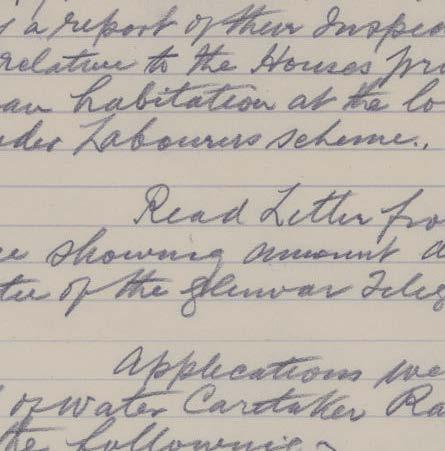 a report of their Inspec
relative to the Houses pro
an habitation at the lo
nder Labourers scheme.,
Read Letter fro
ce showing amount d
tee of the Glenvar Teleg
Applications we
of water Caretaker Ra
the following